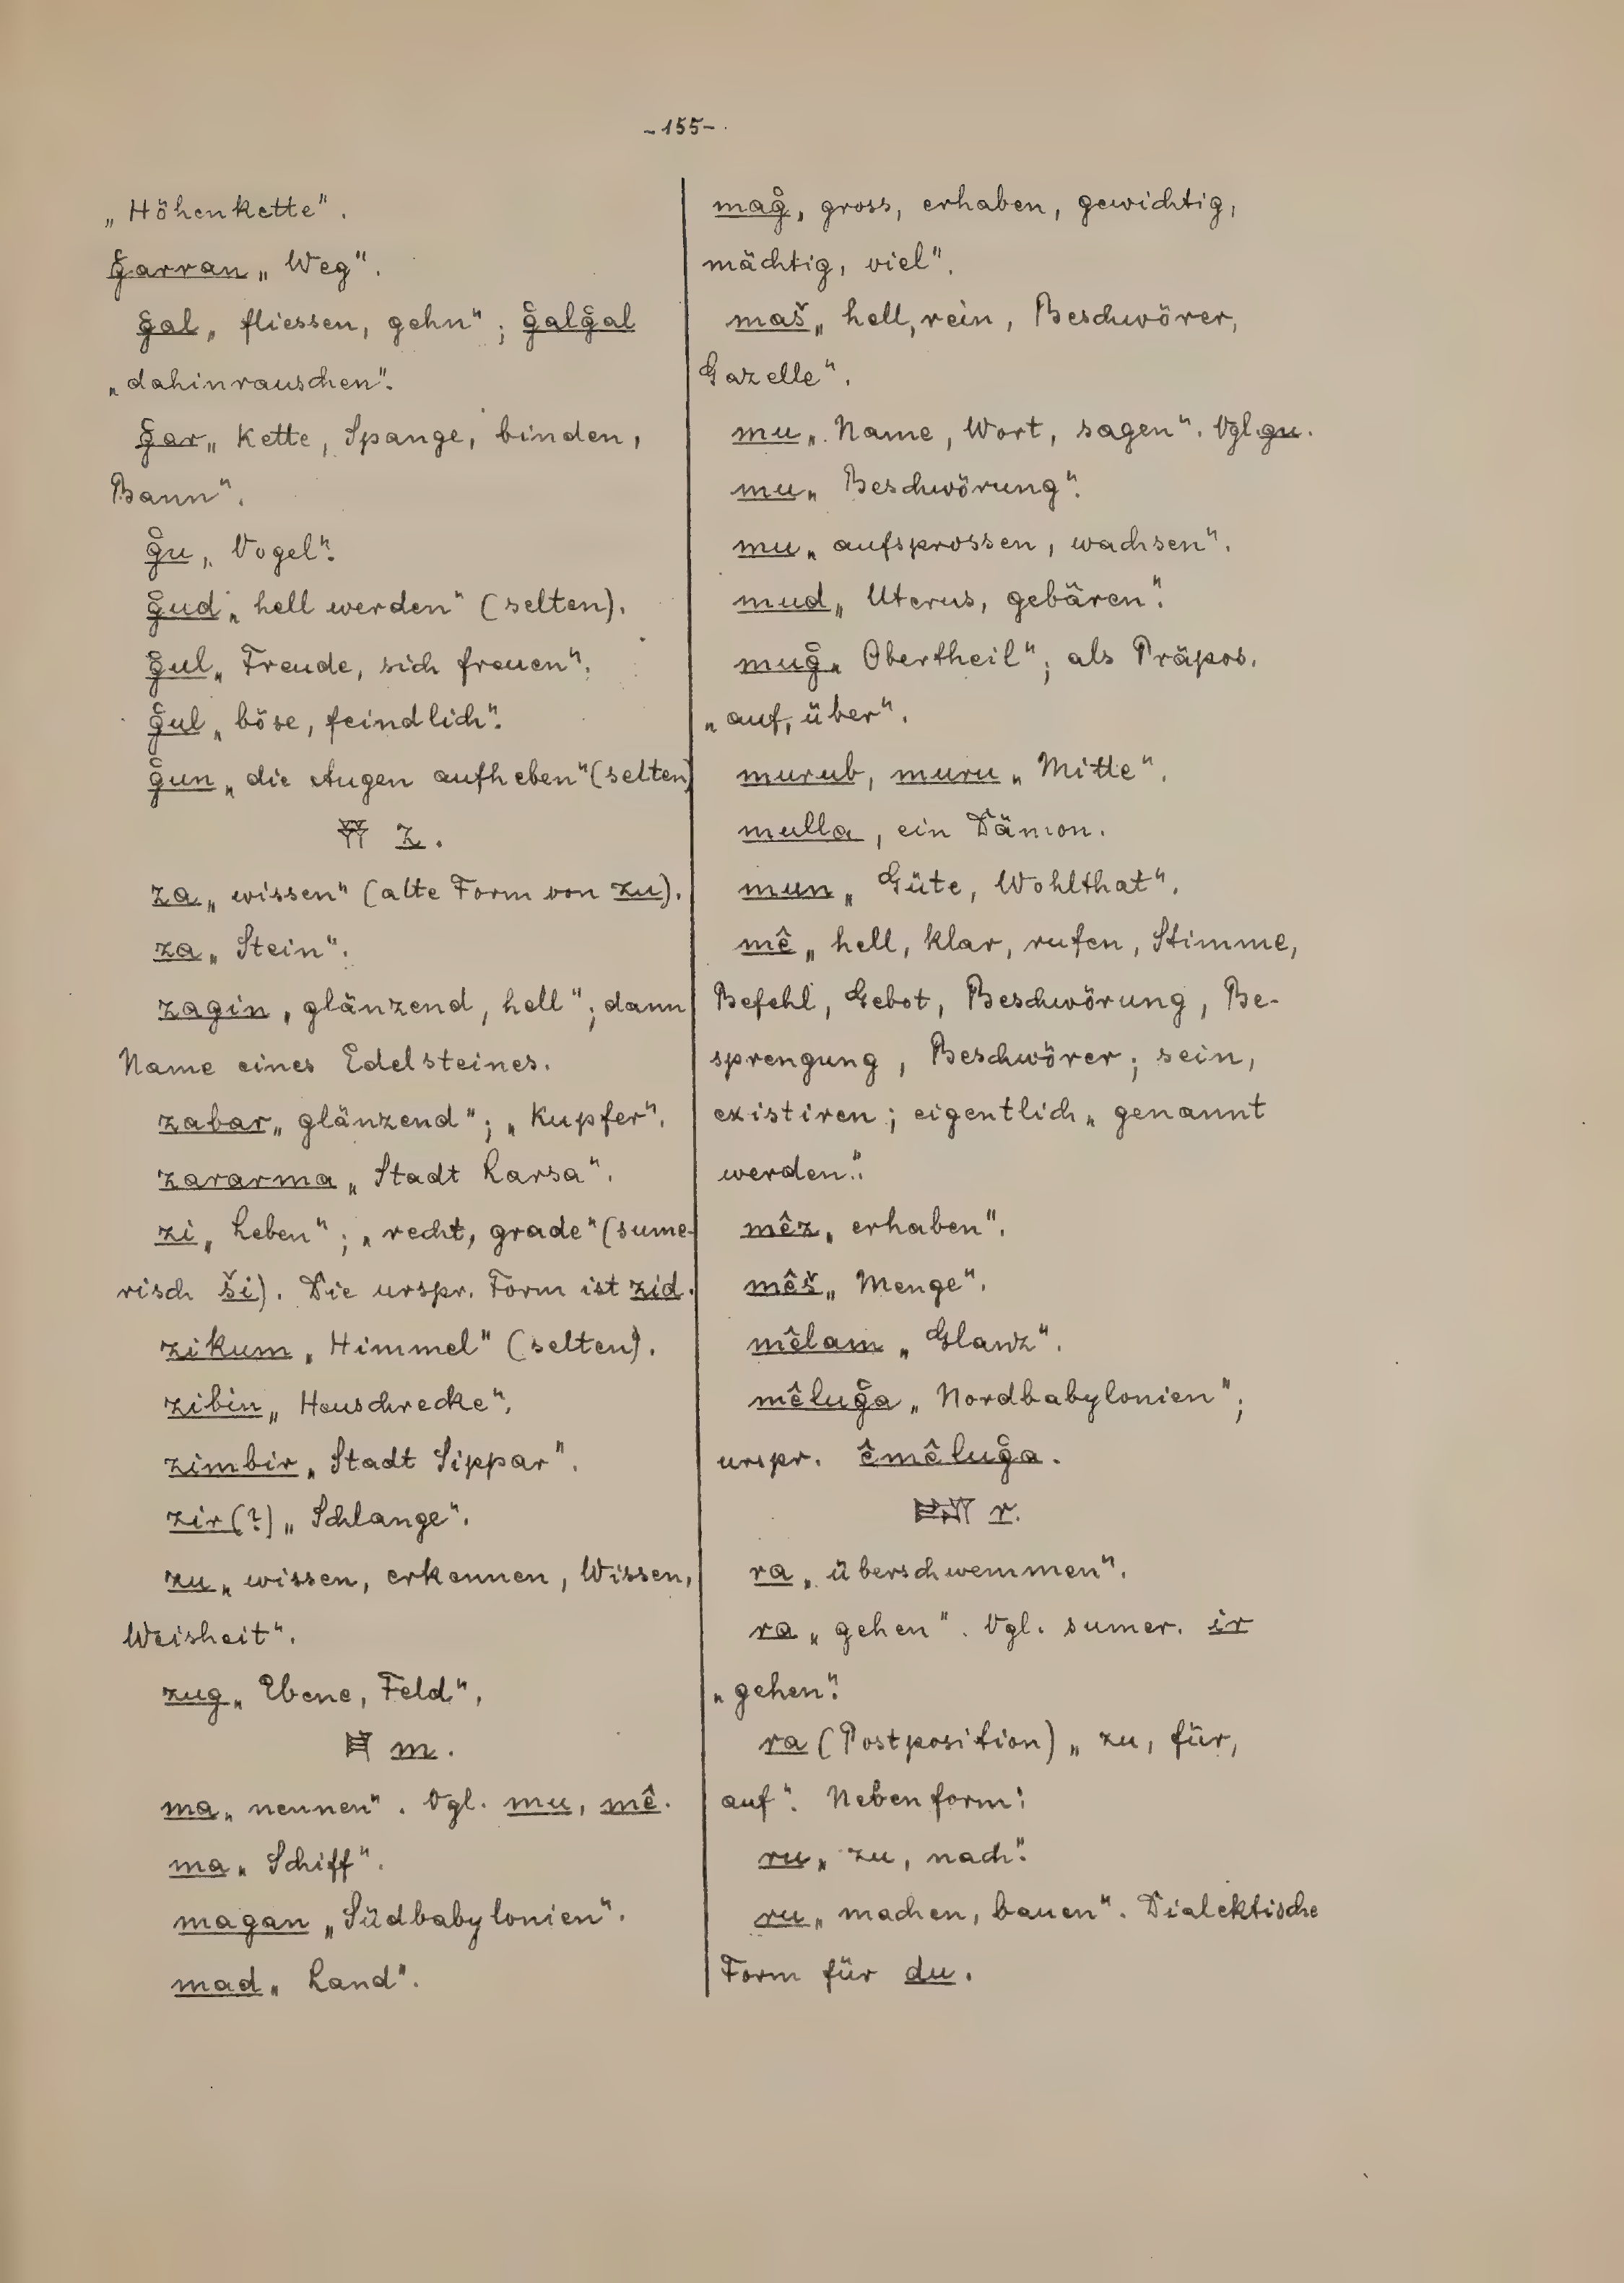 -155-.
„Höhenkette".
g̊arran „Weg".
g̊al „fliessen, gehn"; g̊alg̊al
„dahinrauschen".
g̊ar „Kette, Spange, binden,
Bann".
g̊u „Vogel".
g̊ud „hell werden" (selten).
g̊ul „Freude, sich freuen".
g̊ul „böse, feindlich".
g̊un „die Augen aufheben" (selten)
z.
za „wissen" (alte Form von zu).
za „Stein".
zagin „glänzend, hell"; dann
Name eines Edelsteines.
zabar „glänzend"; „Kupfer".
zararma „Stadt Larsa".
zi „Leben"; „recht, grade" (sume-
risch ši). Die urspr. Form ist zid.
zikum „Himmel" (selten).
zibin „Heuschrecke".
zimbir „Stadt Sippar".
zir(?) „Schlange".
zu „wissen, erkennen, Wissen,
Weisheit".
zug „Ebene, Feld".
m.
ma „nennen". Vgl. mu, mê.
ma „Schiff".
magan „Südbabylonien".
mad „Land".
mag̊ „gross, erhaben, gewichtig,
mächtig, viel".
maš „hell, rein, Beschwörer,
Gazelle".
mu „Name, Wort, sagen". Vgl. gu.
mu „Beschwörung".
mu „aufsprossen, wachsen".
mud „Uterus, gebären".
mug̊ „Obertheil"; als Präpos.
„auf, über".
murub, muru „Mitte".
mulla, ein Dämon.
mun „Güte, Wohlthat".
mê „hell, klar, rufen, Stimme,
Befehl, Gebot, Beschwörung, Be-
sprengung, Beschwörer; sein,
existiren; eigentlich „genannt
werden".
mêz „erhaben".
mêš „Menge".
mêlam „Glanz".
mêlug̊a „Nordbabylonien";
urspr. êmêlug̊a.
r.
ra „überschwemmen".
ra „gehen". Vgl. sumer. ir
„gehen".
ra (Postposition) „zu, für,
auf". Nebenform:
ru „zu, nach".
ru „machen, bauen". Dialektische
Form für du.